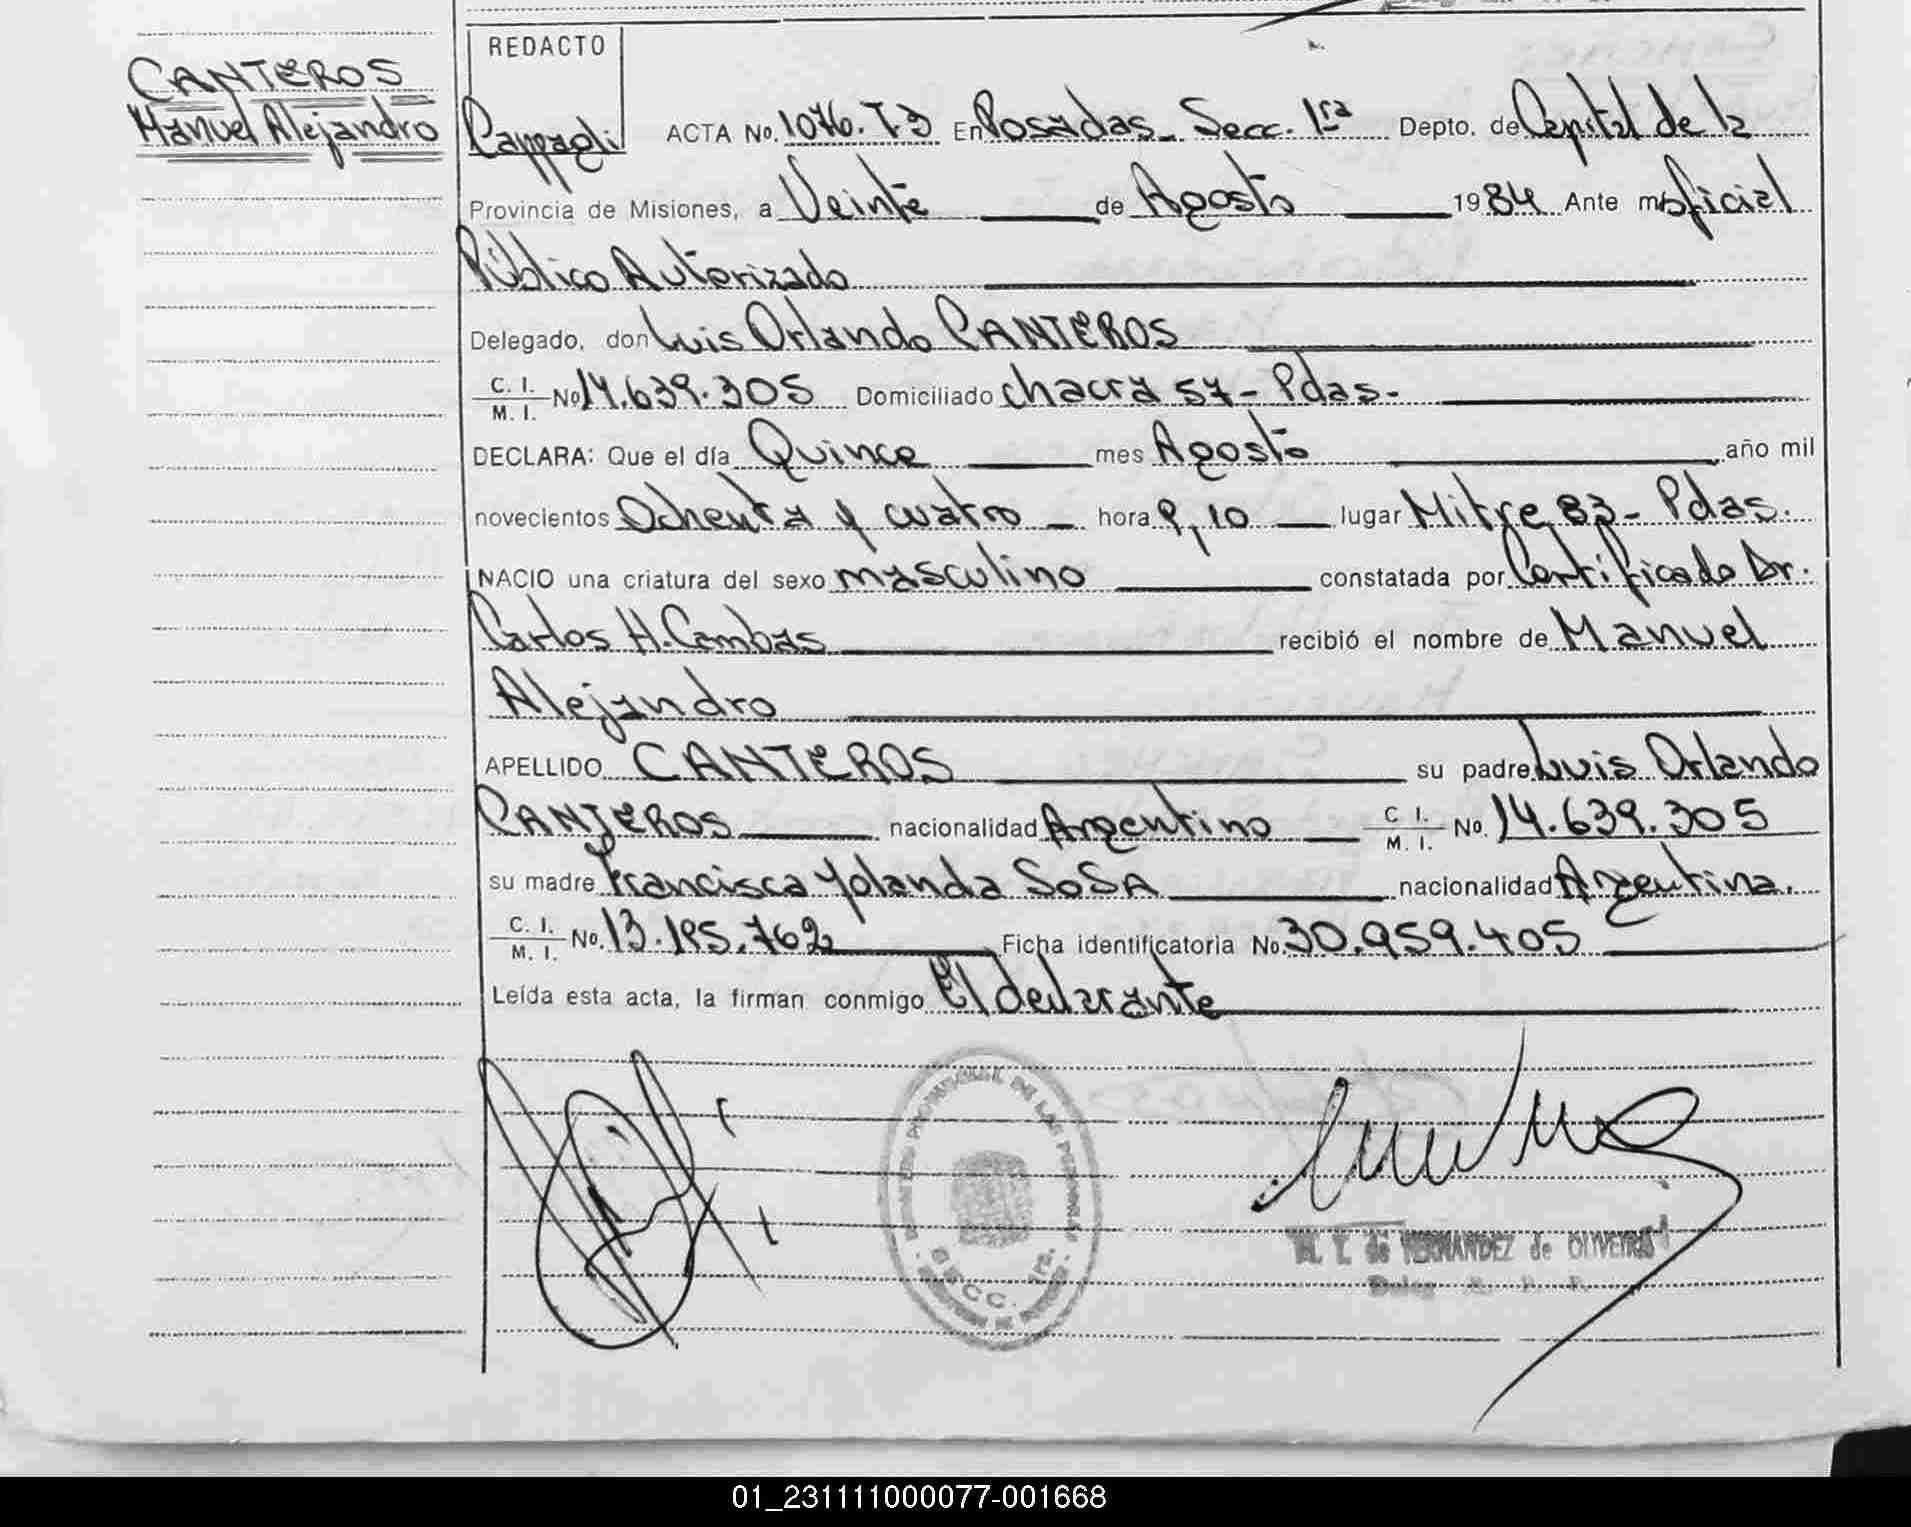 CANTEROS
Manuel Alejandro
REDACTO
Cappagli ACTA No. 1076. T3 En Posadas - Secc. 1ra Depto. de Capital de la
Provincia de Misiones, a Veinte de Agosto 1984 Ante mi oficial
Público Autorizado
Delegado, don Luis Orlando CANTEROS
C. I. M. I. No 14.639.305 Domiciliado chacra 57 - Pdas -
DECLARA: Que el día Quince mes Agosto año mil
novecientos Ochenta y cuatro hora 9,10 lugar Mitre 83 - Pdas.
NACIO una criatura del sexo masculino constatada por Certificado Dr.
Carlos H. Cambas recibió el nombre de Manuel
Alejandro
APELLIDO CANTEROS su padre Luis Orlando
CANTEROS nacionalidad Argentino C I. M. I. No. 14.639.305
su madre Francisca Yolanda SOSA nacionalidad Argentina.
C. I. M. I. No. 13.195.762 Ficha identificatoria No. 30.959.405
Leída esta acta, la firman conmigo El declarante
PROVINCIAL DE LAS PERSONAS
SECC. 1ra.
M. T. de FERNANDEZ de OLIVEIRA
01_231111000077-001668